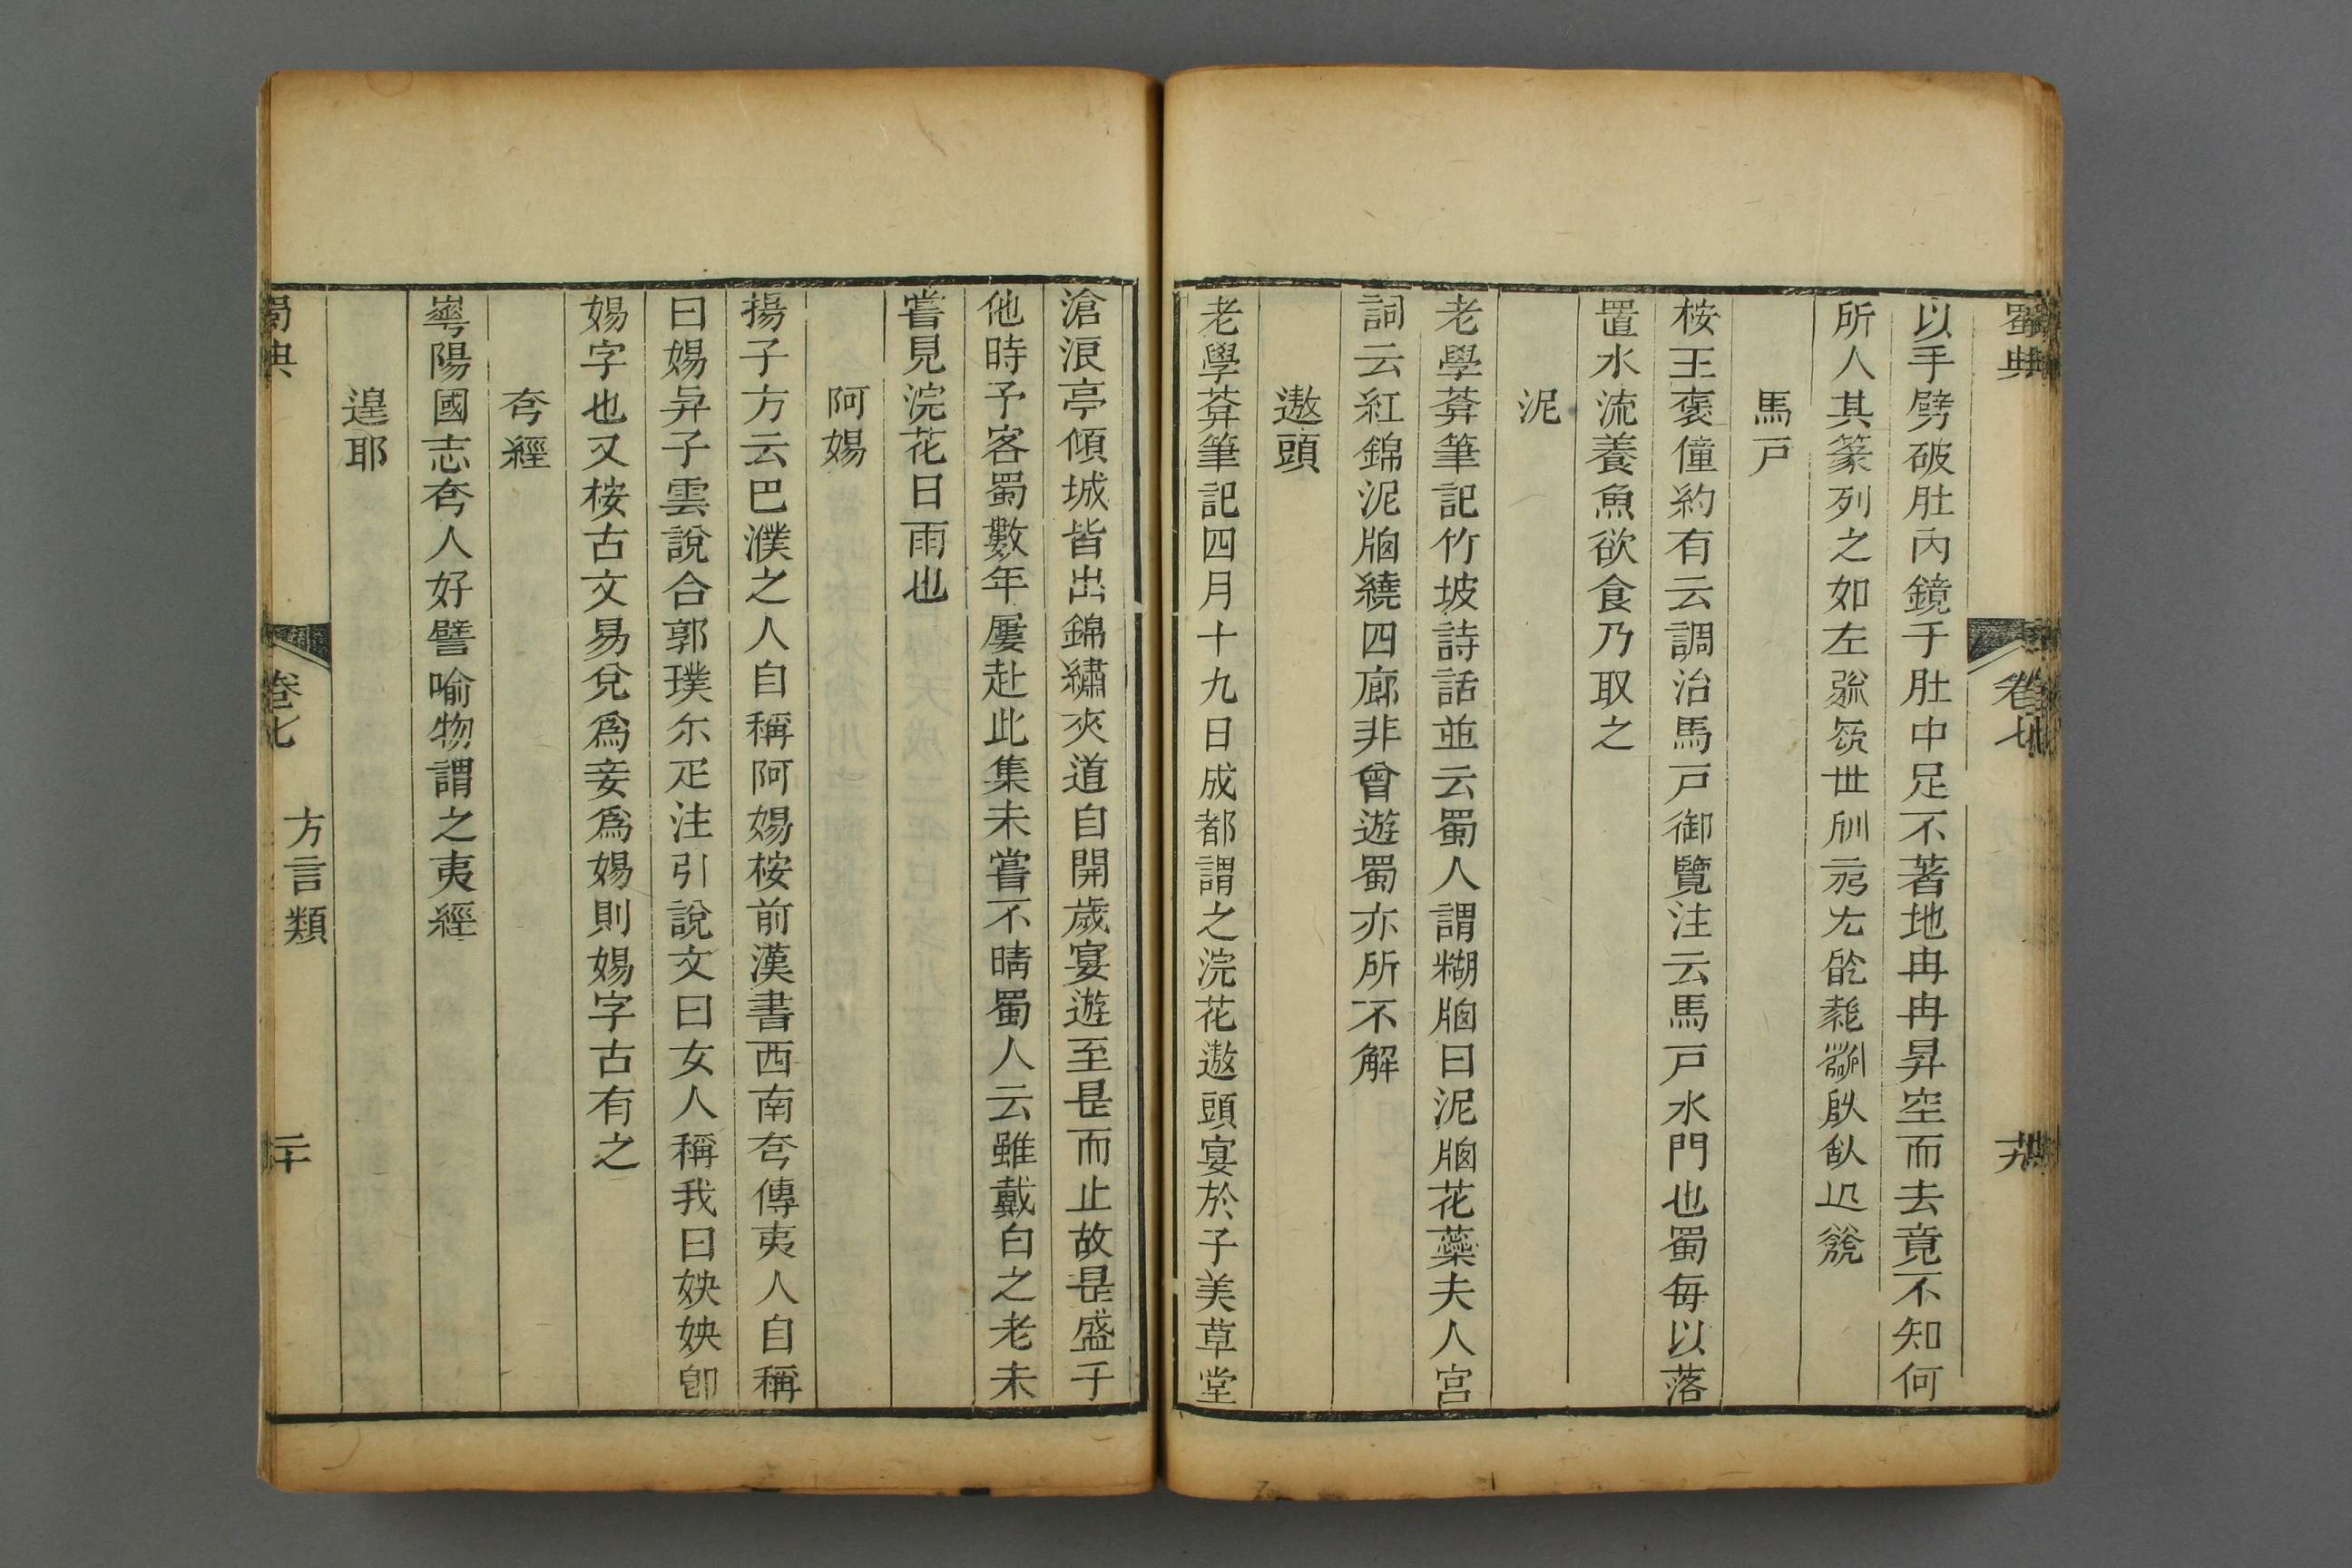 蜀典
卷七
十九
以手劈破肚內鏡于肚中足不著地冉冉昇空而去竟不知何
所人其篆列之如左
馬戸
桉王褒僮約有云調治馬戸御覽注云馬戸水門也蜀每以落
置水流養魚欲食乃取之
泥
老學菴筆記竹坡詩話並云蜀人謂糊牕曰泥牕花蘂夫人宮
詞云紅錦泥牕繞四廊非曾遊蜀亦所不解
遨頭
老學菴筆記四月十九日成都謂之浣花遨頭宴於子美草堂
滄浪亭傾城皆出錦繡夾道自開歲宴遊至是而止故是盛于
他時予客蜀數年屢赴此集未嘗不晴蜀人云雖戴白之老未
嘗見浣花日雨也
阿㛥
揚子方云巴濮之人自稱阿㛥桉前漢書西南夸傳夷人自稱
曰㛥異子雲說合郭璞尔疋注引說文曰女人稱我曰姎姎卽
㛥字也又桉古文易兌爲妾爲㛥則㛥字古有之
夸經
崋陽國志夸人好譬喻物謂之夷經
遑耶
蜀典
卷七
方言類
二十